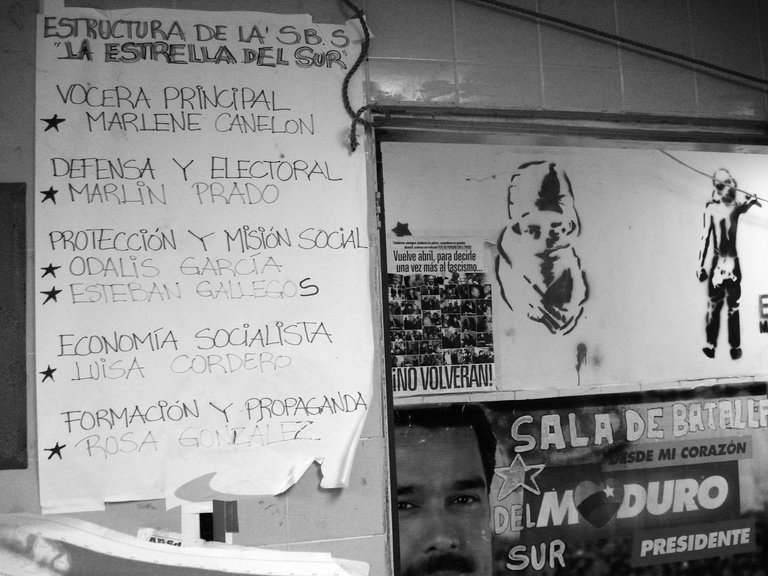 ESTRUCTURA DE LA S.B.S
"LA ESTRELLA DEL SUR"
VOCERA PRINCIPAL
★ MARLENE CANELON
DEFENSA Y ELECTORAL
★ MARLIN PRADO
PROTECCIÓN Y MISIÓN SOCIAL
★ ODALIS GARCÍA
★ ESTEBAN GALLEGOS
ECONOMÍA SOCIALISTA
★ LUISA CORDERO
FORMACIÓN Y PROPAGANDA
★ ROSA GONZÁLEZ
Vuelve abril, para decirle
una vez más al fascismo...
¡NO VOLVERAN!
SALA DE BATALLA
DESDE MI CORAZÓN
DEL MADURO
SUR
PRESIDENTE